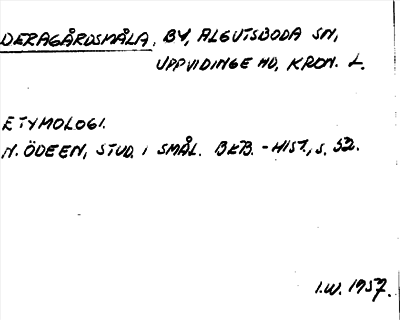 DERAGÅRDSMÅLA, BY, ALGUTSBODA SN,
UPPVIDINGE HD, KRON. L.
ETYMOLOGI.
N. ÖDEEN, STUD. I SMÅL. BEB.-HIST., S. 52.
I.W. 1957.